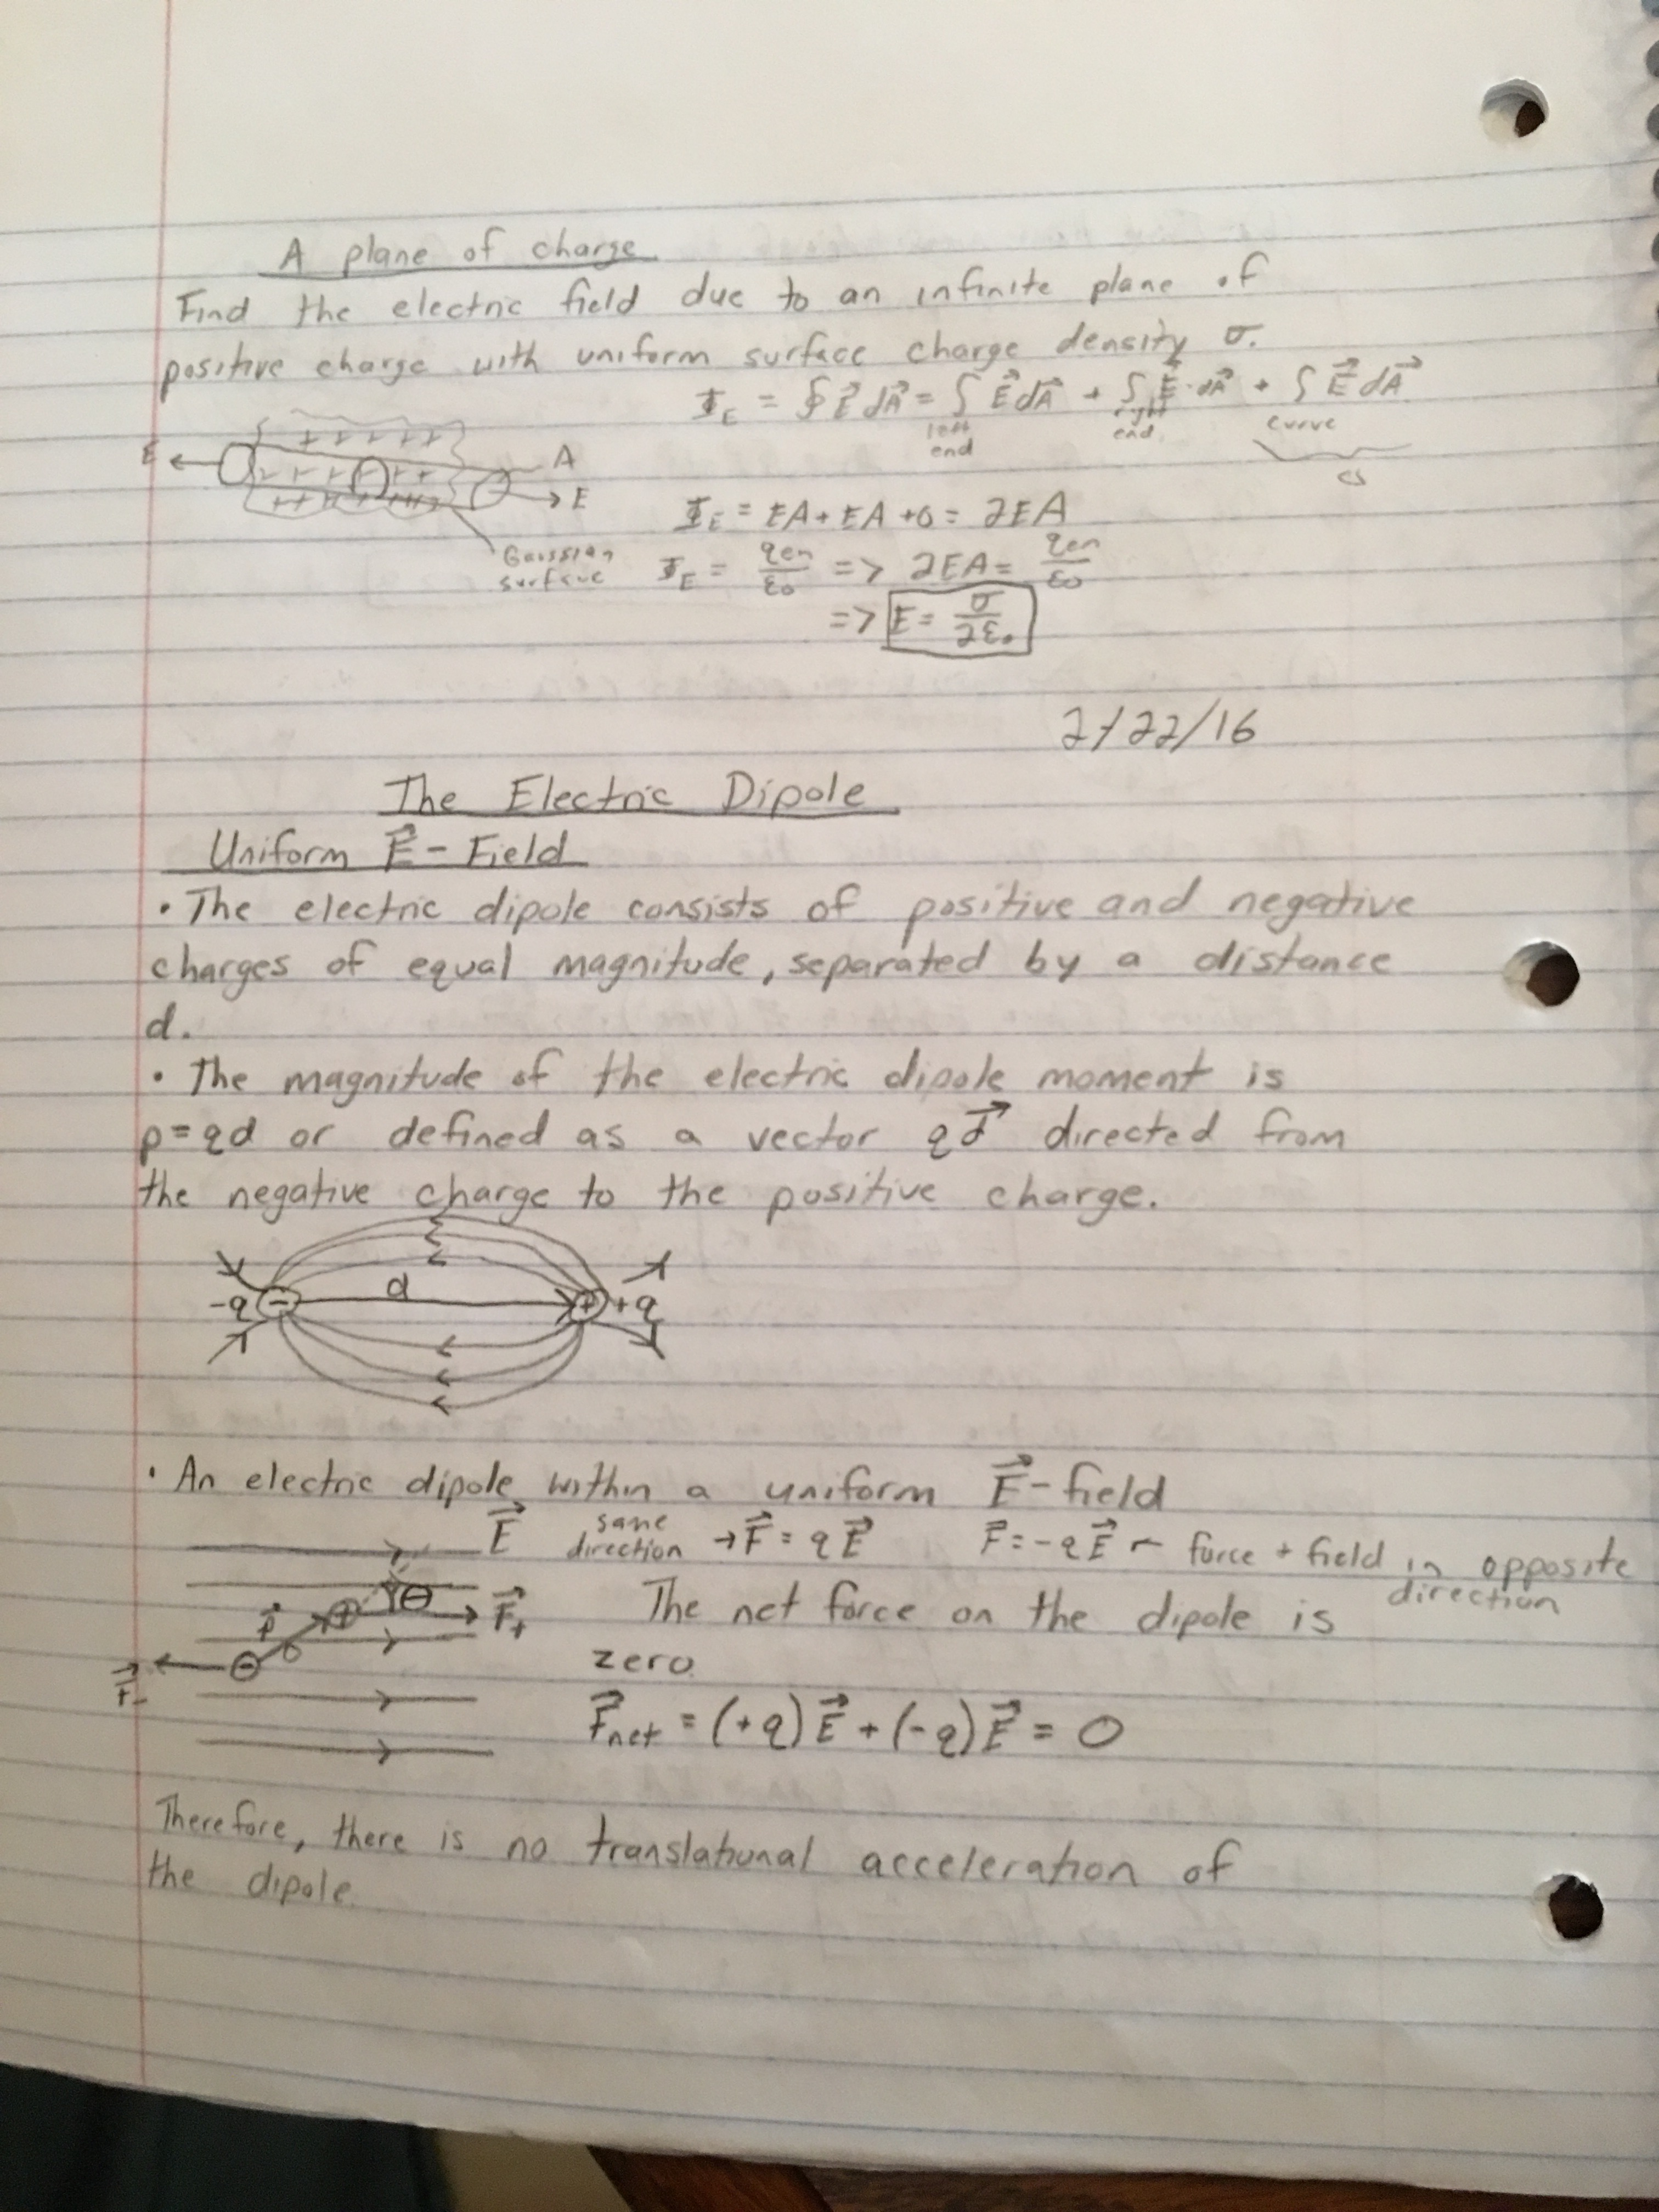 A plane of charge
Find the electric field due to an infinite plane of
positive charge with uniform surface charge density σ.
Φ_E = ∮ E⃗ dA⃗ = ∫ E⃗ dA⃗ + ∫ E⃗ · dA⃗ + ∫ E⃗ dA⃗
left end right end curve
cs
E A
E
Gaussian
surface
Φ_E = EA + EA + 0 = 2EA
Φ_E = qen/ε₀ => 2EA = qen/ε₀
=> E = σ/2ε₀
2/22/16
The Electric Dipole
Uniform E⃗ - Field
• The electric dipole consists of positive and negative
charges of equal magnitude, separated by a distance
d.
• The magnitude of the electric dipole moment is
p = qd or defined as a vector qd⃗ directed from
the negative charge to the positive charge.
d
-q - + +q
• An electric dipole within a uniform E⃗ - field
E⃗ same direction → F⃗ = qE⃗ F⃗ = -qE⃗ ← force + field in opposite direction
p⃗ + θ F⃗₊
F⃗₋ -
The net force on the dipole is
zero.
F⃗net = (+q) E⃗ + (-q) E⃗ = 0
Therefore, there is no translational acceleration of
the dipole.